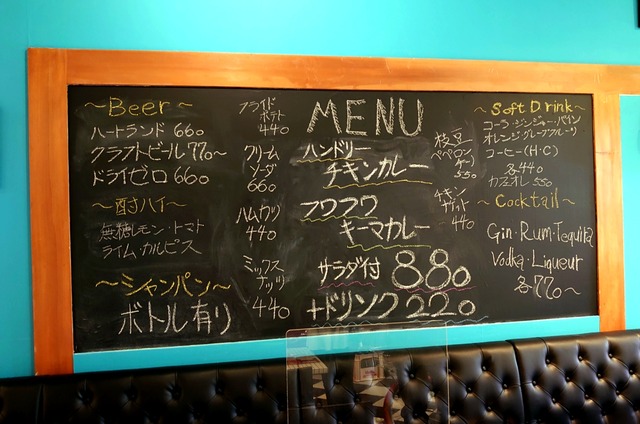 ~Beer~
ハートランド 660
クラフトビール 770~
ドライゼロ 660
~酎ハイ~
無糖レモン・トマト
ライム・カルピス
~シャンパン~
ボトル有り
フライド
ポテト
440
クリーム
ソーダ
660
ハムウリ
440
ミックス
ナッツ
440
MENU
ハンドリー
チキンカレー
フワフワ
キーマカレー
サラダ付 880
+ドリンク 220
枝豆
ペペロン
チーノ
550
チキン
ナゲット
440
~Soft Drink~
コーラ・ジンジャー・パイン
オレンジ・グレープフルーツ
コーヒー(H・C)
各440
カフェオレ 550
~Cocktail~
Gin・Rum・Tequila
Vodka・Liqueur
各770~